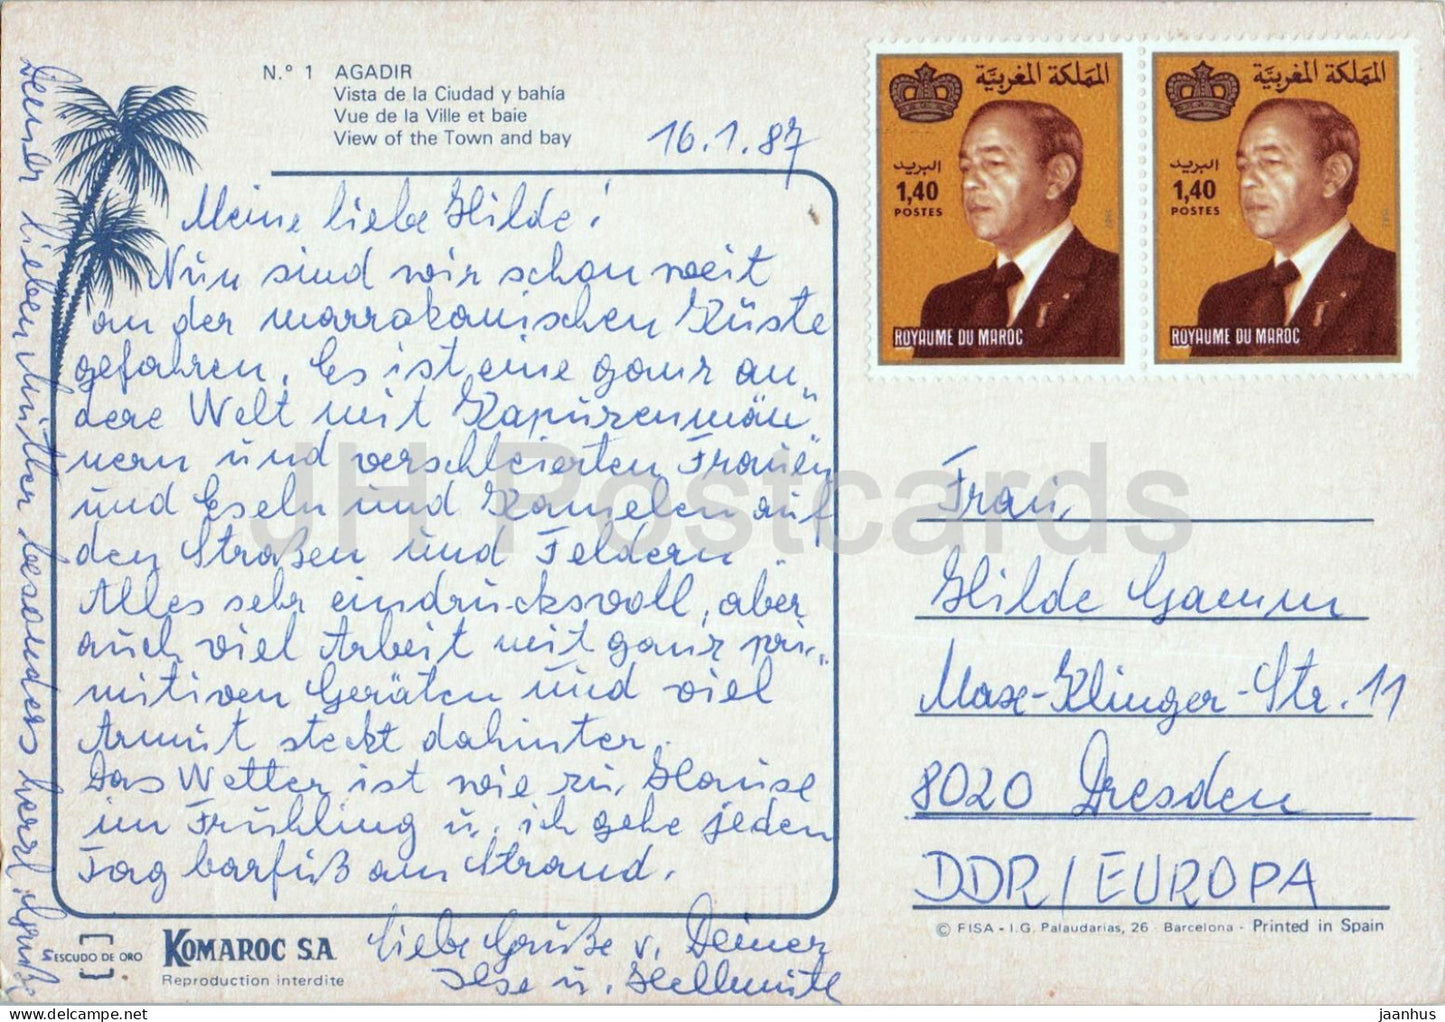 N.° 1 AGADIR
Vista de la Ciudad y bahía
Vue de la Ville et baie
View of the Town and bay
16.1.87
Meine liebe Hilde!
Nun sind wir schon weit
an der marrokanischen Küste
gefahren. Es ist eine ganz an„
dere Welt mit Kapuzenmän„
nern und verschleierten Frauen
und Eseln und Kamelen auf
den Straßen und Feldern.
Alles sehr eindrucksvoll, aber
auch viel Arbeit mit ganz pri„
mitiven Geräten und viel
Armut steckt dahinter.
Das Wetter ist wie zu Hause
im Frühling u. ich gehe jeden
Tag barfuß am Strand.
Liebe Grüße v. Deiner
Ilse u. Hellmut
Deiner lieben Mutter besonders herzl. Grüße
المملكة المغربية
البريد
1,40
POSTES
1987
ROYAUME DU MAROC
المملكة المغربية
البريد
1,40
POSTES
1987
ROYAUME DU MAROC
Frau
Hilde Gamm
Max-Klinger-Str. 11
8020 Dresden
DDR/EUROPA
© FISA - I.G. Palaudarias, 26 - Barcelona - Printed in Spain
ESCUDO DE ORO
KOMAROC S.A.
Reproduction interdite
JH Postcards
jaanhus @ delcampe.net